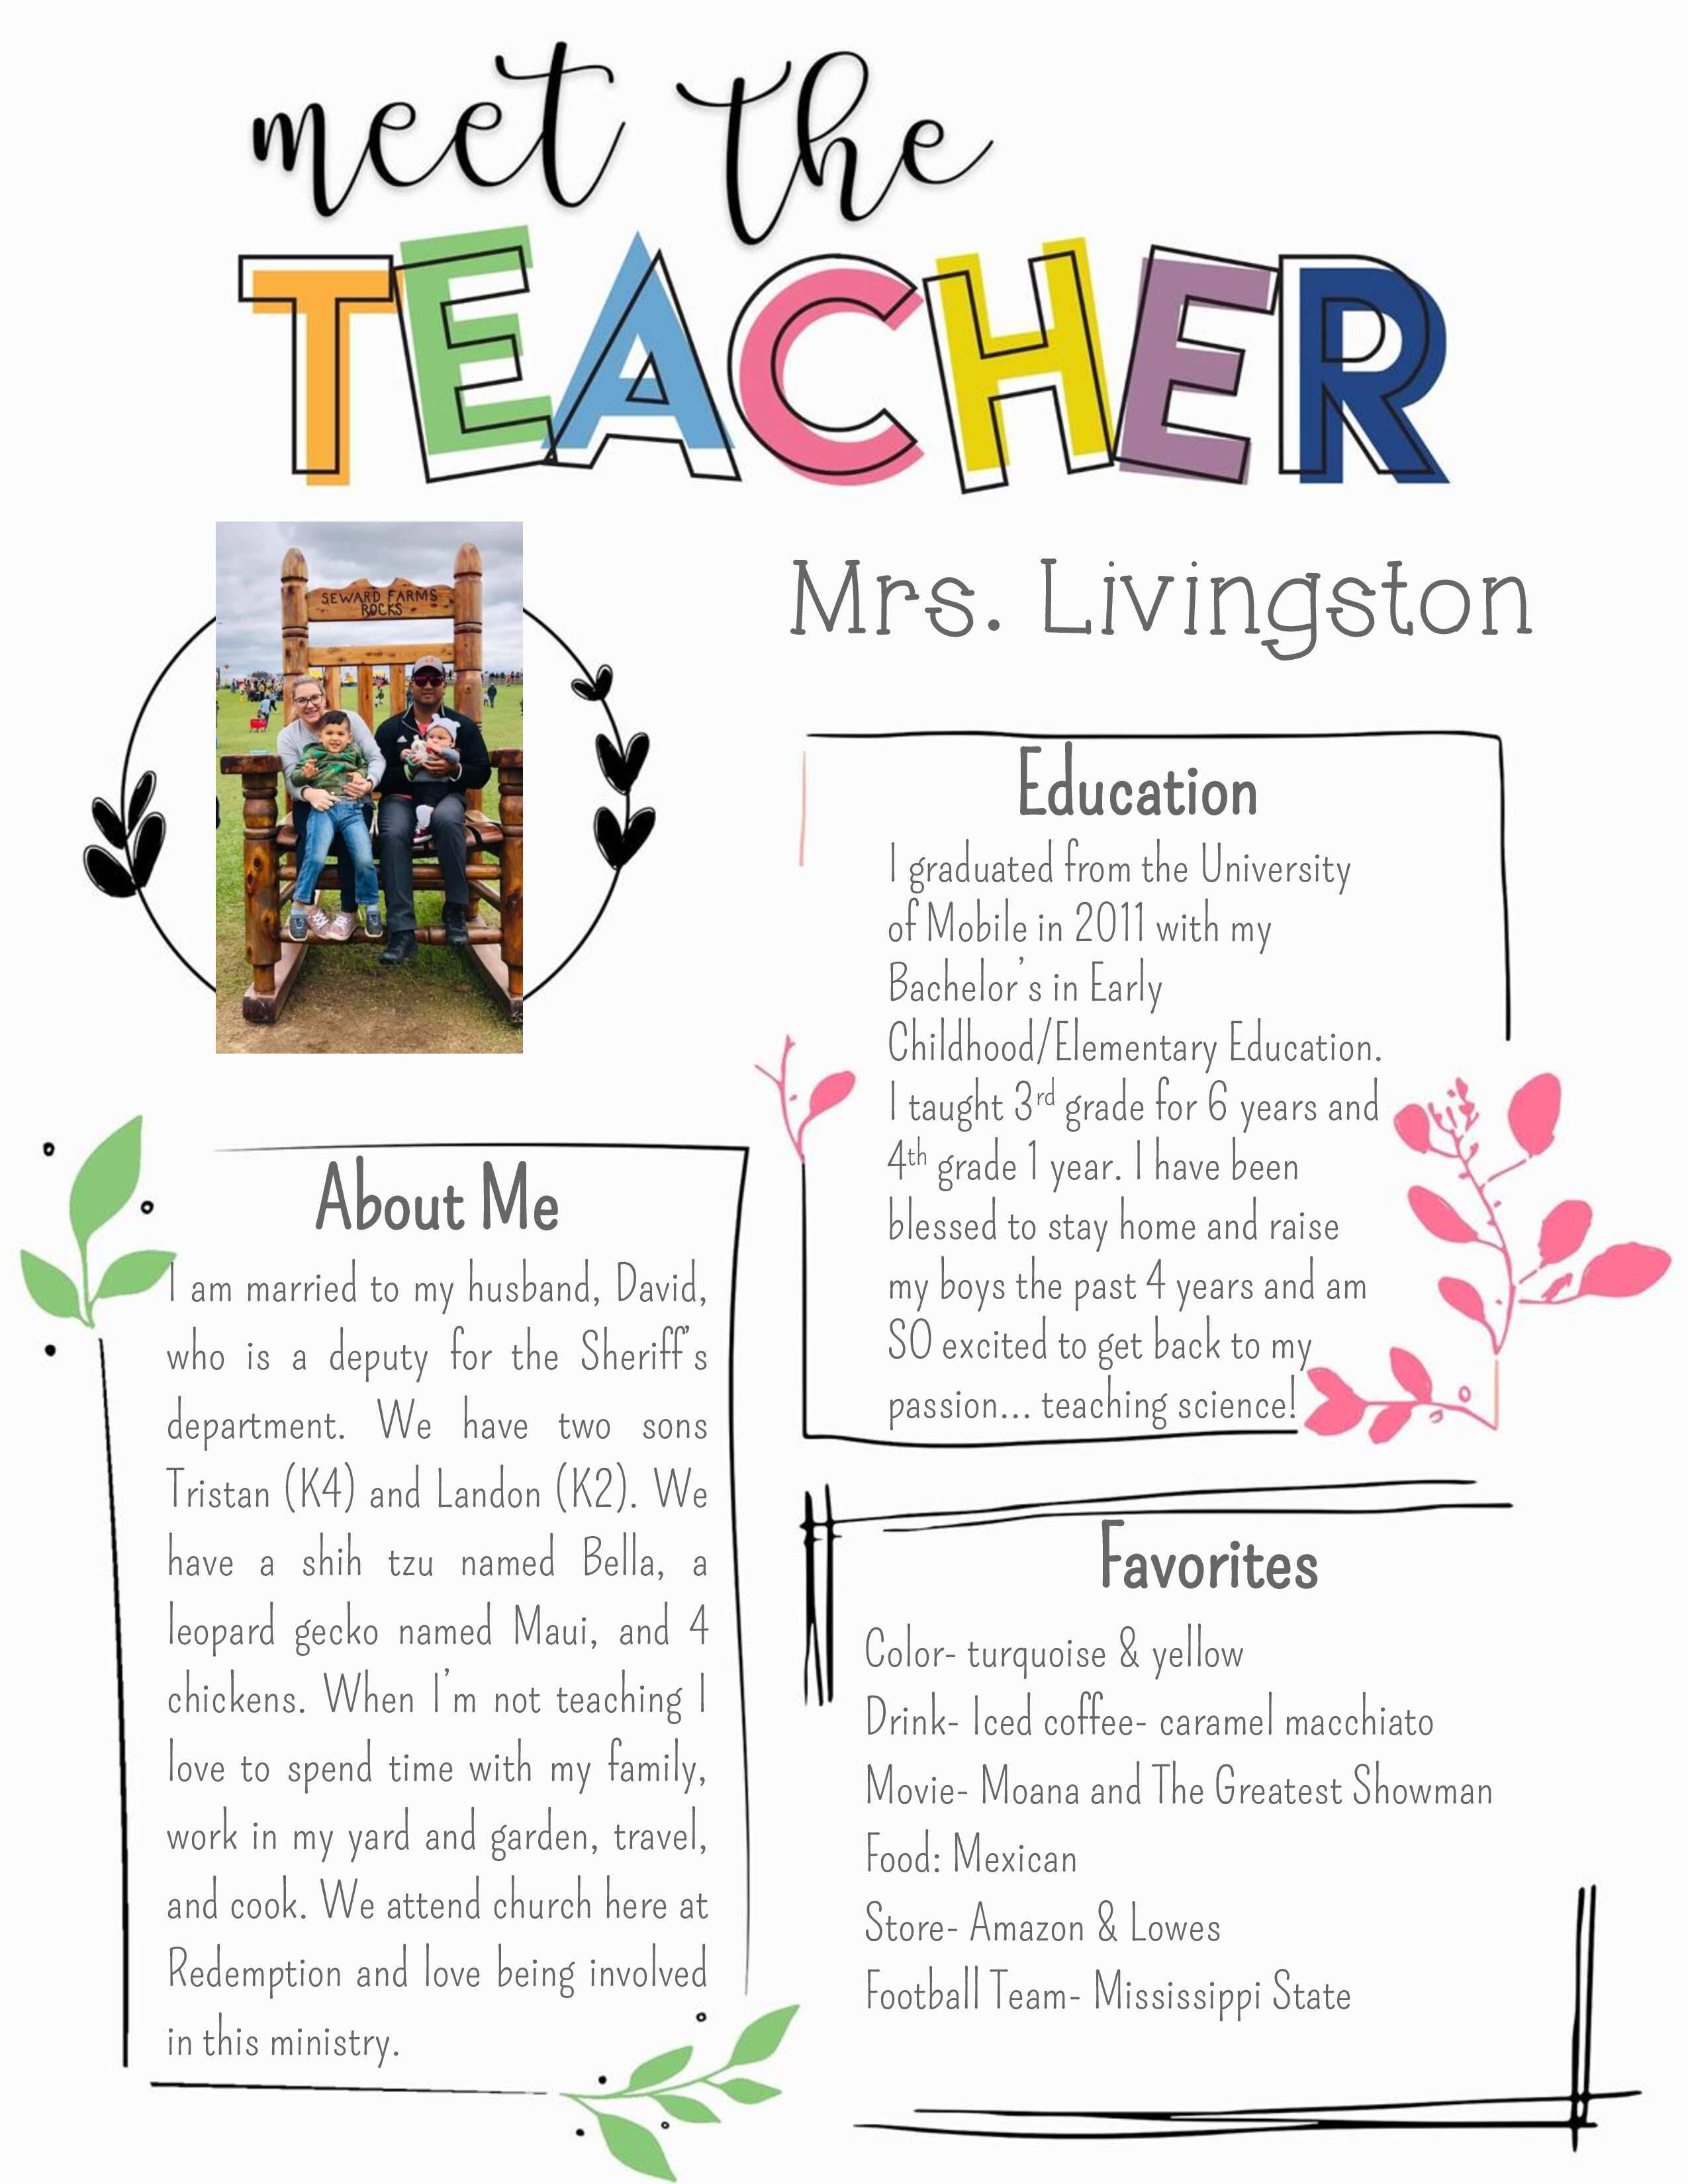 meet the
TEACHER
SEWARD FARMS
ROCKS
Mrs. Livingston
Education
I graduated from the University
of Mobile in 2011 with my
Bachelor's in Early
Childhood/Elementary Education.
I taught 3rd grade for 6 years and
4th grade 1 year. I have been
blessed to stay home and raise
my boys the past 4 years and am
SO excited to get back to my
passion... teaching science!
About Me
I am married to my husband, David,
who is a deputy for the Sheriff's
department. We have two sons
Tristan (K4) and Landon (K2). We
have a shih tzu named Bella, a
leopard gecko named Maui, and 4
chickens. When I'm not teaching I
love to spend time with my family,
work in my yard and garden, travel,
and cook. We attend church here at
Redemption and love being involved
in this ministry.
Favorites
Color- turquoise & yellow
Drink- Iced coffee- caramel macchiato
Movie- Moana and The Greatest Showman
Food: Mexican
Store- Amazon & Lowes
Football Team- Mississippi State